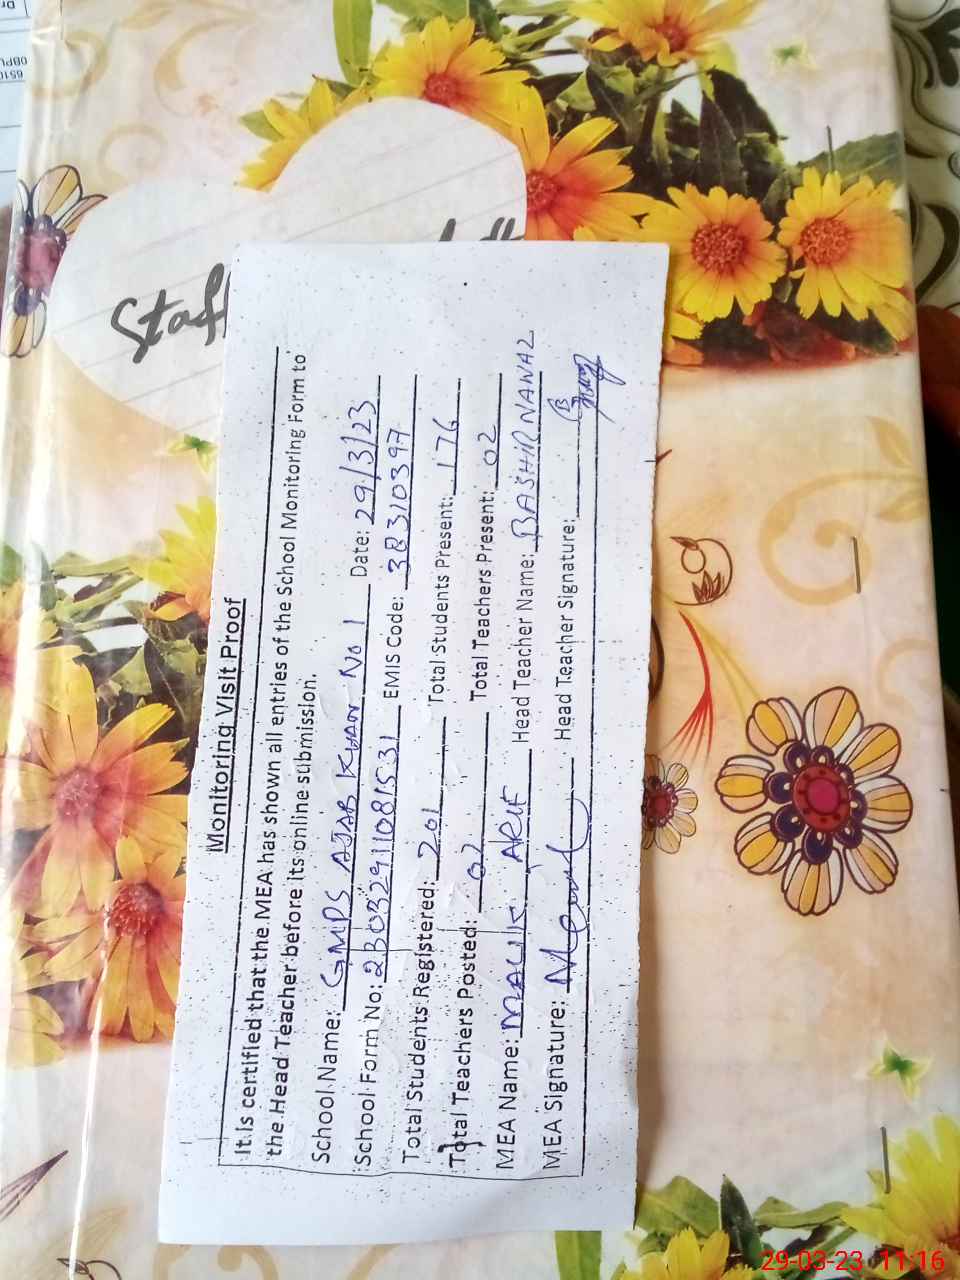 Staff
Monitoring Visit Proof
It is certified that the MEA has shown all entries of the School Monitoring Form to
the Head Teacher before its online submission.
School Name: GMPS AJAB KHAN No 1 Date: 29/3/23
School Form No: EMIS Code: 38310397
Total Students Registered: 201 Total Students Present: 176
Total Teachers Posted: 02 Total Teachers Present: 02
MEA Name: MALIK ARIF Head Teacher Name: BASHIR NAWAZ
MEA Signature: Head Teacher Signature:
29-03-23 11:16